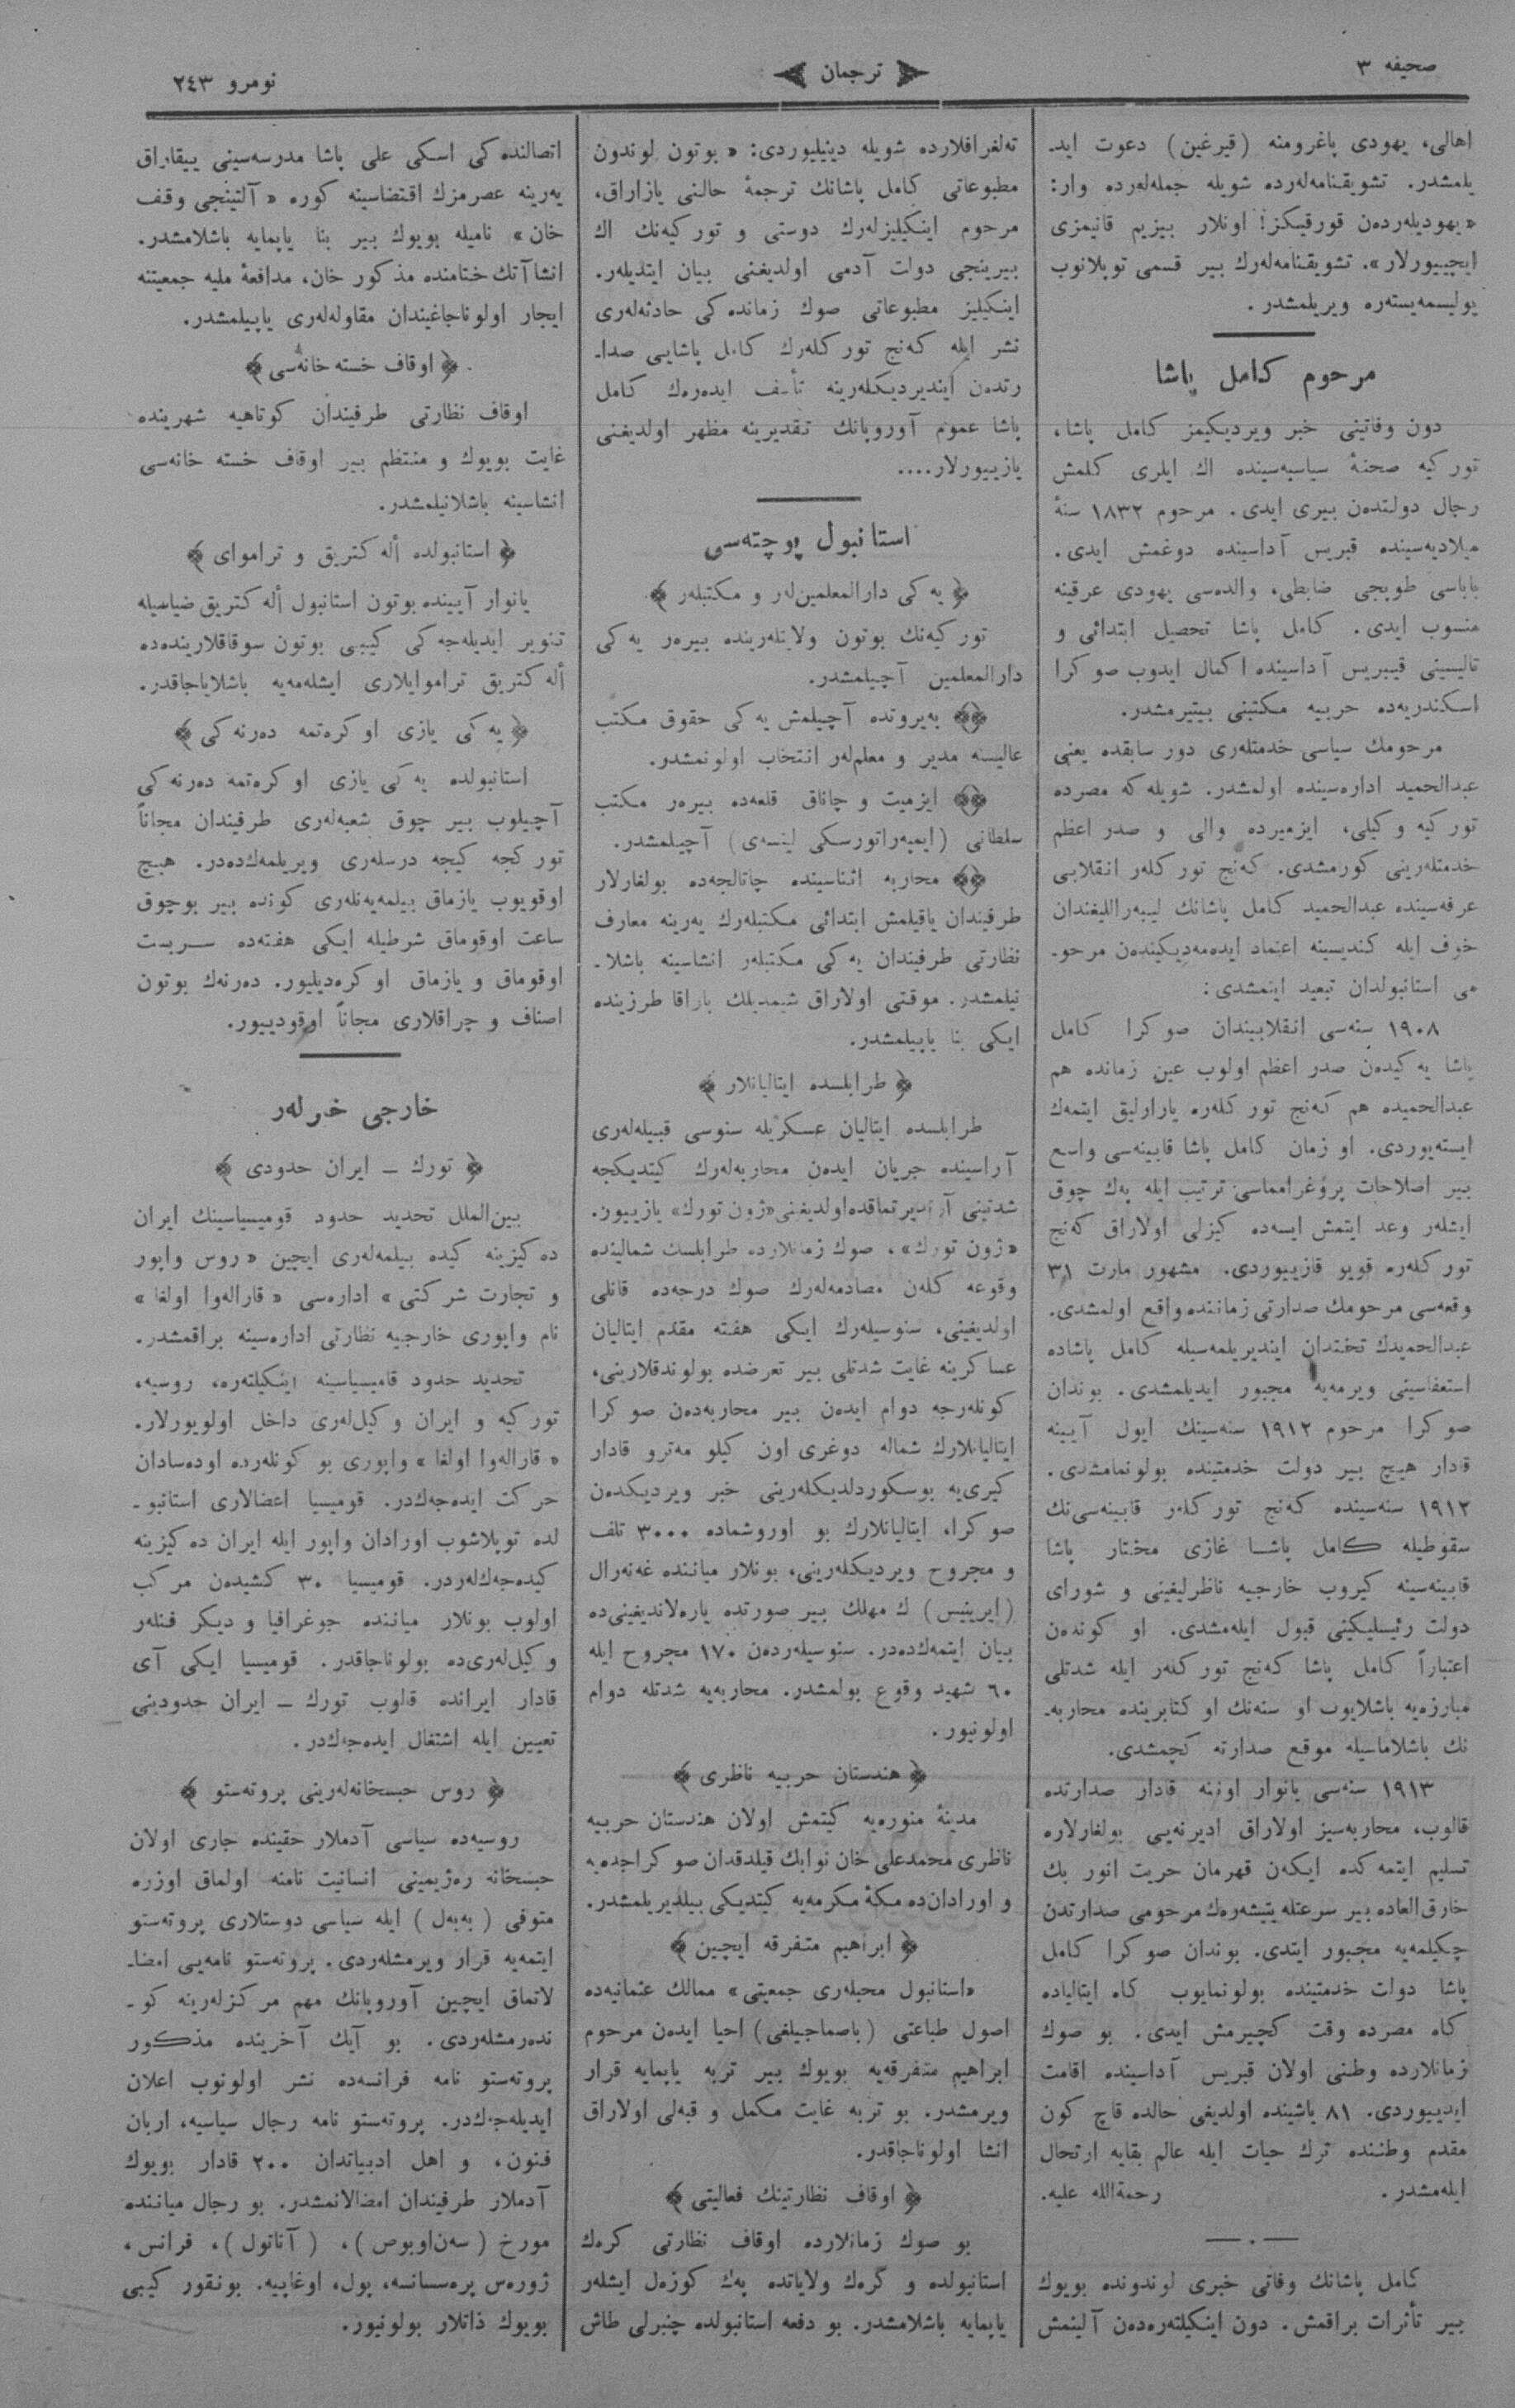 صحیفه ۳
ترجمان
نومرو ۲۴۳
اهالی، یهودی پاغرومنه (قیرغین) دعوت اید۔
یلمشدر. تشویقنامه‌لەرده شویله جمله‌لەرده وار:
«یهودیلەردەن قورقیڭز! اونلار بیزیم قانیمزی
ایچییورلار». تشویقنامه‌لەرك بیر قسمی توپلانوب
پولیسمەیستەره ویریلمشدر.
مرحوم كامل پاشا
دون وفاتینی خبر ویردیكیمز كامل پاشا،
توركیه صحنۀ سیاسیه‌سینده اك ایلری كلمش
رجال دولتدەن بیری ایدی. مرحوم ۱۸۳۲ سنۀ
میلادیه‌سینده قبریس آداسینده دوغمش ایدی.
باباسی طوپجی ضابطی، والدەسی یهودی عرقینه
منسوب ایدی. كامل پاشا تحصیل ابتدائی و
تالیسینی قیبریس آداسینده اكمال ایدوب صوكرا
اسكندریەده حربیه مكتبنی بیتیرمشدر.
مرحومك سیاسی خدمتلەری دور سابقده یعنی
عبدالحمید ادارەسینده اولمشدر. شویله كه مصرده
توركیه وكیلی، ایزمیرده والی و صدر اعظم
خدمتلەرینی كورمشدی. كەنج توركلەر انقلابی
عرفه‌سینده عبدالحمید كامل پاشانك لیبەراللیغندان
خوف ایله كندیسینه اعتماد ایدەمەدیكیندەن مرحو۔
می استانبولدان تبعید ایتمشدی:
۱۹۰۸ سنه‌سی انقلابیندان صوكرا كامل
پاشا یەكیدەن صدر اعظم اولوب عین زمانده هم
عبدالحمیده هم كەنج توركلەره یارارلیق ایتمەك
ایستەیوردی. او زمان كامل پاشا قابینه‌سی واسع
بیر اصلاحات پروغرامماسی ترتیب ایله پەك چوق
ایشلەر وعد ایتمش ایسەده كیزلی اولاراق كەنج
توركلەره قویو قازییوردی. مشهور مارت ۳۱
وقعه‌سی مرحومك صدارتی زماننده واقع اولمشدی.
عبدالحمیدك تختدان ایندیریلمه‌سیله كامل پاشاده
استعفاسینی ویرمه‌یه مجبور ایدیلمشدی. بوندان
صوكرا مرحوم ۱۹۱۲ سنه‌سینك ایول آیینه
قادار هیچ بیر دولت خدمتینده بولونمامشدی.
۱۹۱۲ سنه‌سینده كەنج توركلەر قابینه‌سی‌نك
سقوطیله كامل پاشا غازی مختار پاشا
قابینه‌سینه كیروب خارجیه ناظرلیغینی و شورای
دولت رئیسلیكینی قبول ایله‌مشدی. او كوندەن
اعتباراً كامل پاشا كەنج توركلەر ایله شدتلی
مبارزەیه باشلایوب او سنه‌نك اوكتابرینده محاربه۔
نك باشلاماسیله موقع صدارته كچمشدی.
۱۹۱۳ سنه‌سی یانوار اونینه قادار صدارتده
قالوب، محاربه‌سیز اولاراق ادیرنه‌یی بولغارلاره
تسلیم ایتمەكده ایكەن قهرمان حریت انور بك
خارق‌العاده بیر سرعتله یتیشەرەك مرحومی صدارتدن
چكیلمه‌یه مجبور ایتدی. بوندان صوكرا كامل
پاشا دولت خدمتینده بولونمایوب كاه ایتالیاده
كاه مصرده وقت كچیرمش ایدی. بو صوك
زمانلارده وطنی اولان قبریس آداسینده اقامت
ایدییوردی. ۸۱ یاشینده اولدیغی حالده قاچ كون
مقدم وطننده ترك حیات ایله عالم بقایه ارتحال
ایله‌مشدر. رحمةالله علیه.
كامل پاشانك وفاتی خبری لوندونده بویوك
بیر تأثرات براقمش. دون اینكیلتەرەدەن آلینمش
تەلغرافلارده شویله دینیلیوردی: «بوتون لوندون
مطبوعاتی كامل پاشانك ترجمۀ حالنی یازاراق،
مرحوم اینكیلیزلەرك دوستی و توركیه‌نك اك
بیرینجی دولت آدمی اولدیغنی بیان ایتدیلەر.
اینكیلیز مطبوعاتی صوك زمانده‌كی حادثه‌لەری
نشر ایله كەنج توركلەرك كامل پاشایی صدا۔
رتدەن ایندیردیكلەرینه تأسف ایدەرەك كامل
پاشا عموم آوروپانك تقدیرینه مظهر اولدیغنی
یازییورلار....
استانبول پوچتەسی
﴿ یەكی دارالمعلمین‌لەر و مكتبلەر ﴾
توركیه‌نك بوتون ولایتلەرینده بیرەر یەكی
دارالمعلمین آچیلمشدر.
﴿﴾ بەیروتده آچیلمش یەكی حقوق مكتب
عالیسنه مدیر و معلم‌لەر انتخاب اولونمشدر.
﴿﴾ ایزمیت و چاناق قلعەده بیرەر مكتب
سلطانی (ایمپەراتورسكی لیتسەی) آچیلمشدر.
﴿﴾ محاربه اثناسینده چاتالجەده بولغارلار
طرفیندان یاقیلمش ابتدائی مكتبلەرك یەرینه معارف
نظارتی طرفیندان یەكی مكتبلەر انشاسینه باشلا۔
نیلمشدر. موقتی اولاراق شیمدیلك باراقا طرزینده
ایكی بنا یاپیلمشدر.
﴿ طرابلسده ایتالیانلار ﴾
طرابلسده ایتالیان عسكریله سنوسی قبیله‌لەری
آراسینده جریان ایدەن محاربه‌لەرك كیتدیكجه
شدتینی آرتدیرتماقده اولدیغنی «ژون تورك» یازییور.
«ژون تورك»، صوك زمانلارده طرابلسك شمالینده
وقوعه كلەن مصادمه‌لەرك صوك درجەده قانلی
اولدیغینی، سنوسیلەرك ایكی هفته مقدم ایتالیان
عساكرینه غایت شدتلی بیر تعرضده بولوندقلارینی،
كونلەرجه دوام ایدەن بیر محاربەدەن صوكرا
ایتالیانلارك شماله دوغری اون كیلو مەترو قادار
كیری‌یه بوسكوردلدیكلەرینی خبر ویردیكدەن
صوكرا، ایتالیانلارك بو اوروشماده ۳۰۰۰ تلف
و مجروح ویردیكلەرینی، بونلار میاننده غەنەرال
(ایرینیس) ك مهلك بیر صورتده یارەلاندیغینی‌ده
بیان ایتمەك‌دەدر. سنوسیلەردەن ۱۷۰ مجروح ایله
۶۰ شهید وقوع بولمشدر. محاربەیه شدتله دوام
اولونیور.
﴿ هندستان حربیه ناظری ﴾
مدینۀ منورەیه كیتمش اولان هندستان حربیه
ناظری محمدعلی خان نوابك قیلدقدان صوكرا جدەیه
و اورادان‌ده مكۀ مكرمه‌یه كیتدیكی بیلدیریلمشدر.
﴿ ابراهیم متفرقه ایچین ﴾
«استانبول محبلەری جمعیتی» ممالك عثمانیەده
اصول طباعتی (باصماجیلغی) احیا ایدەن مرحوم
ابراهیم متفرقه‌یه بویوك بیر تربه یاپمایه قرار
ویرمشدر. بو تربه غایت مكمل و قبه‌لی اولاراق
انشا اولوناجاقدر.
﴿ اوقاف نظارتینك فعالیتی ﴾
بو صوك زمانلارده اوقاف نظارتی كرەك
استانبولده و كرەك ولایاتده پەك كوزەل ایشلەر
یاپمایه باشلامشدر. بو دفعه استانبولده چنبرلی طاش
اتصالنده‌كی اسكی علی پاشا مدرسه‌سینی ییقاراق
یەرینه عصرمزك اقتضاسینه كوره «آلتینجی وقف
خان» نامیله بویوك بیر بنا یاپمایه باشلامشدر.
انشاآتك ختامنده مذكور خان، مدافعۀ ملیه جمعیتنه
ایجار اولوناجاغیندان مقاوله‌لەری یاپیلمشدر.
﴿ اوقاف خسته خانه‌سی ﴾
اوقاف نظارتی طرفیندان كوتاهیه شهرینده
غایت بویوك و منتظم بیر اوقاف خسته خانه‌سی
انشاسینه باشلانیلمشدر.
﴿ استانبولده أله‌كتریق و تراموای ﴾
یانوار آیینده بوتون استانبول أله‌كتریق ضیاسیله
تنویر ایدیله‌جەكی كیبی بوتون سوقاقلاریندەده
أله‌كتریق تراموایلاری ایشله‌مه‌یه باشلایاجاقدر.
﴿ یەكی یازی اوكرەتمه دەرنەكی ﴾
استانبولده یەكی یازی اوكرەتمه دەرنەكی
آچیلوب بیر چوق شعبه‌لەری طرفیندان مجاناً
توركجه كیجه درسلەری ویریلمەك‌دەدر. هیچ
اوقویوب یازماق بیلمەیەنلەری كونده بیر بوچوق
ساعت اوقوماق شرطیله ایكی هفتەده سربست
اوقوماق و یازماق اوكرەدیلیور. دەرنەك بوتون
اصناف و چراقلاری مجاناً اوقودییور.
خارجی خبرلەر
﴿ تورك ــ ایران حدودی ﴾
بین‌الملل تحدید حدود قومیسیاسینك ایران
دەكیزینه كیده بیلمه‌لەری ایچین «روس واپور
و تجارت شركتی» ادارەسی «قارالەوا اولغا»
نام واپوری خارجیه نظارتی ادارەسینه براقمشدر.
تحدید حدود قامیسیاسینه اینكیلتەره، روسیه،
توركیه و ایران وكیل‌لەری داخل اولویورلار.
«قارالەوا اولغا» واپوری بو كونلەرده اودەسادان
حركت ایدەجەك‌در. قومیسیا اعضالاری استانبو۔
لده توپلاشوب اورادان واپور ایله ایران دەكیزینه
كیدەجەك‌لەردر. قومیسیا ۳۰ كشیدەن مركب
اولوب بونلار میاننده جوغرافیا و دیكر فنلەر
وكیل‌لەری‌ده بولوناجاقدر. قومیسیا ایكی آی
قادار ایرانده قالوب تورك ــ ایران حدودینی
تعیین ایله اشتغال ایدەجەك‌در.
﴿ روس حبسخانه‌لەرینی پروتەستو ﴾
روسیەده سیاسی آدملار حقینده جاری اولان
حبسخانه رەژیمینی انسانیت نامنه اولماق اوزره
متوفی (بەبەل) ایله سیاسی دوستلاری پروتەستو
ایتمه‌یه قرار ویرمشلەردی. پروتەستو نامه‌یی امضا۔
لاتماق ایچین آوروپانك مهم مركزلەرینه كو۔
ندەرمشلەردی. بو آیك آخرینده مذكور
پروتەستو نامه فرانسەده نشر اولونوب اعلان
ایدیله‌جەك‌در. پروتەستو نامه رجال سیاسیه، اربان
فنون، و اهل ادبیاتدان ۲۰۰ قادار بویوك
آدملار طرفیندان امضالانمشدر. بو رجال میاننده
مورخ (سەن‌اوبوص)، (آناتول)، فرانس،
ژورەس پرەسسانسه، پول، اوغاپیه. بونقور كیبی
بویوك ذاتلار بولونیور.